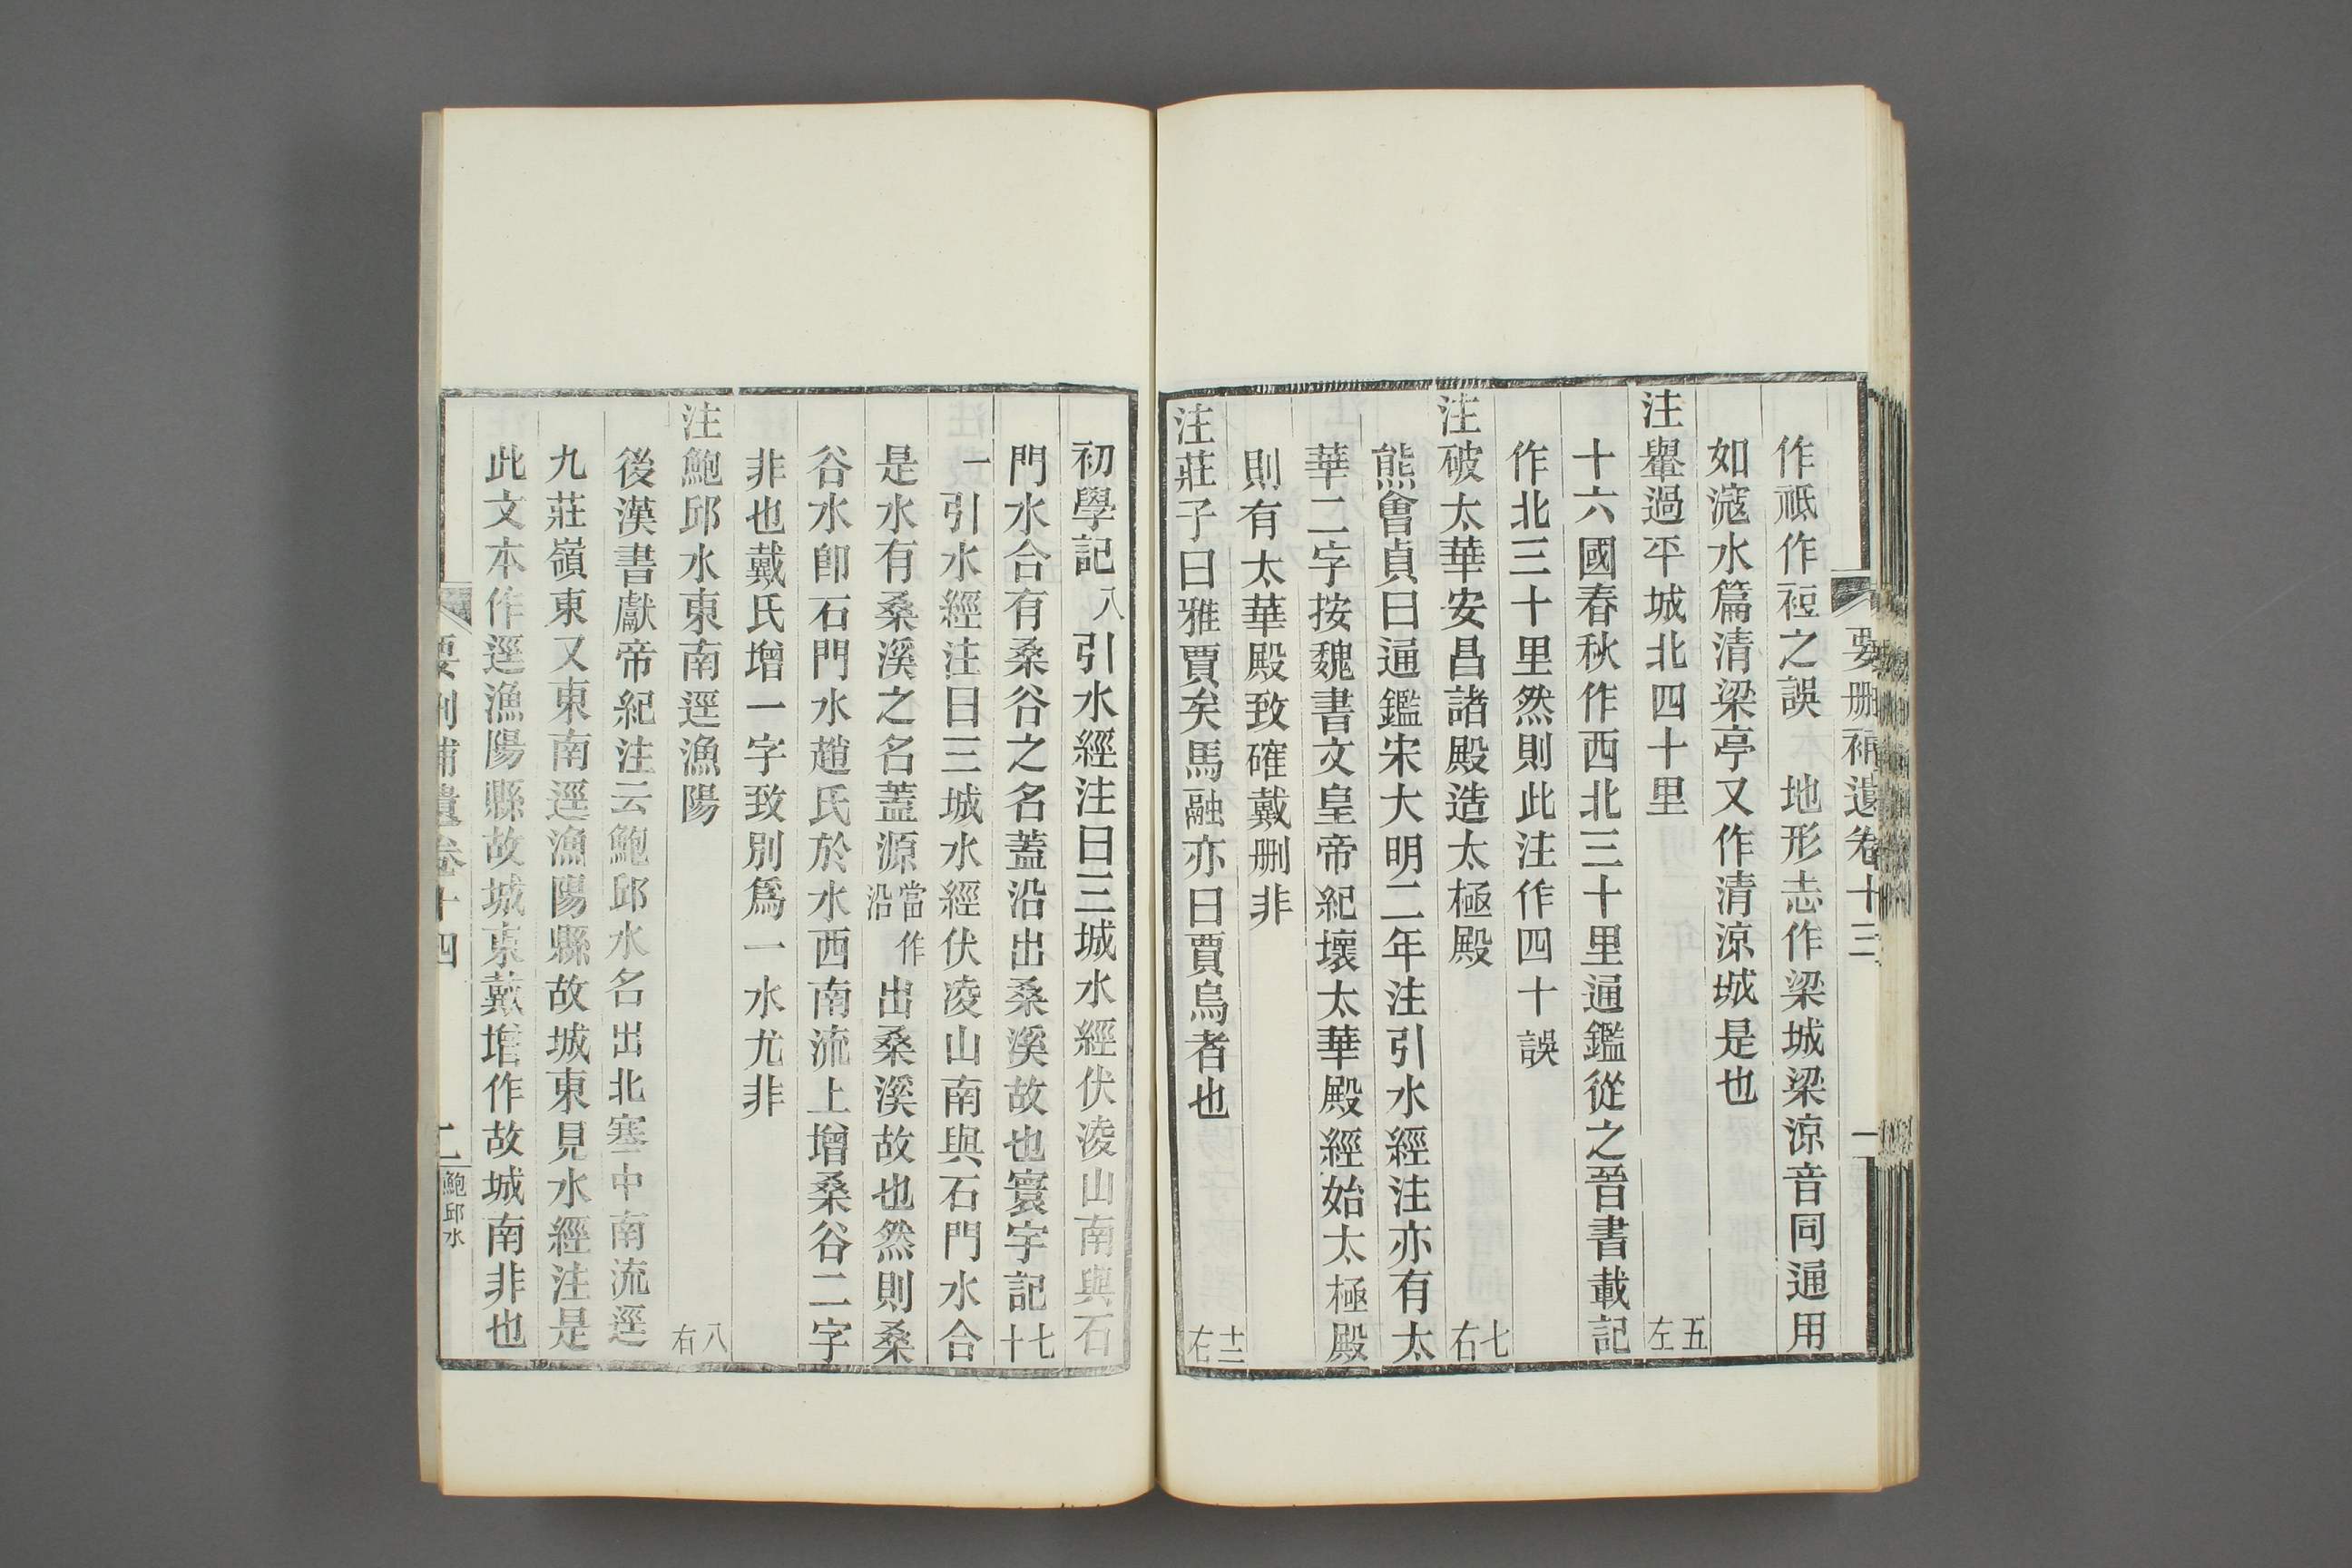 要刪補遺卷十三 一
作祗作祋之誤 地形志作梁城梁涼音同通用
如㴲水篇清梁亭又作清涼城是也
注轝過平城北四十里 五左
十六國春秋作西北三十里通鑑從之晉書載記
作北三十里然則此注作四十誤
注破太華安昌諸殿造太極殿 七右
熊會貞曰通鑑宋大明二年注引水經注亦有太
華二字按魏書文皇帝紀壞太華殿經始太極殿
則有太華殿致確戴刪非
注莊子曰雅賈矣馬融亦曰賈烏者也 十二右
初學記八引水經注曰三城水經伏凌山南與石
門水合有桑谷之名蓋沿出桑溪故也寰宇記七十
一引水經注曰三城水經伏凌山南與石門水合
是水有桑溪之名蓋源當作沿出桑溪故也然則桑
谷水卽石門水趙氏於水西南流上增桑谷二字
非也戴氏增一字致別爲一水尤非
注鮑邱水東南逕漁陽 八右
後漢書獻帝紀注云鮑邱水名出北塞中南流逕
九莊嶺東又東南逕漁陽縣故城東見水經注是
此文本作逕漁陽縣故城東戴增作故城南非也
要刪補遺卷十四 二 鮑邱水